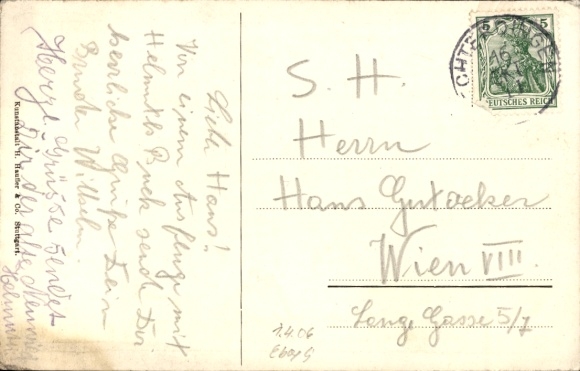 Liebe Hans!
Von einem Ausfluge mit
Helmuth Buck sendet Dir
herzliche Grüße Dein
Bruder Wilhelm.
Herzl. Grüsse sendet
Dir der alte
Helmuth
Kunstanstalt H. Haufler & Co. Stuttgart.
5 5
DEUTSCHES REICH
CHTERDINGEN
S. H.
Herrn
Hans Gutocker
Wien VIII.
Lange Gasse 5/7
1.4.06